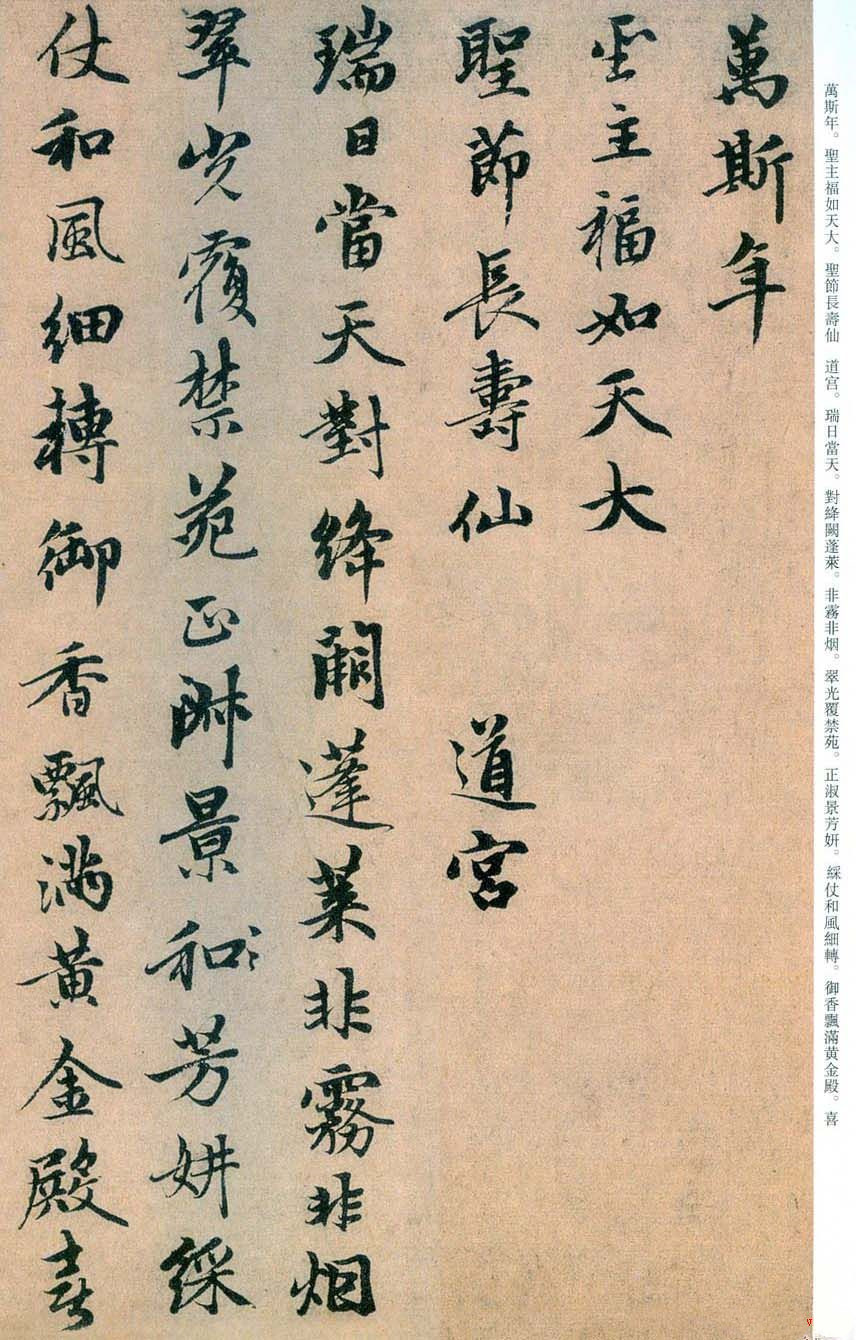 萬斯年
聖主福如天大
聖節長壽仙　道宮
瑞日當天對絳闕蓬萊非霧非烟
翠光覆禁苑正淑景和芳妍綵
仗和風細轉御香飄滿黃金殿喜
萬斯年。聖主福如天大。聖節長壽仙　道宮。瑞日當天。對絳闕蓬萊。非霧非烟。翠光覆禁苑。正淑景芳妍。綵仗和風細轉。御香飄滿黃金殿。喜